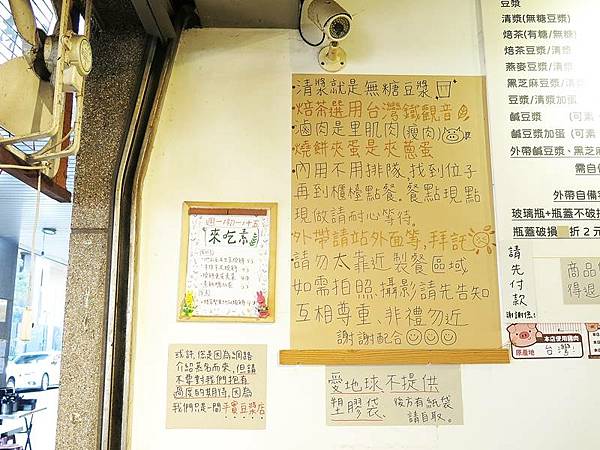 清漿就是無糖豆漿
·焙茶選用台灣鐵觀音
·滷肉是里肌肉(瘦肉)
·燒餅夾蛋是夾蔥蛋
·內用不用排隊,找到位子
再到櫃檯點餐.餐點現點
現做請耐心等待.
外帶請站外面等,拜託
請勿太靠近 製餐區域
如需拍照.攝影請先告知
互相尊重、非禮勿近
謝謝配合
來吃素
或許,您是因為網路
介紹慕名而來,但請
不要對我們抱有
過度的期待,因為
我們只是一間平實豆漿店
愛地球不提供
塑膠袋、後方有紙袋
請自取。
豆漿
清漿(無糖豆漿)
焙茶(有糖/無糖)
焙茶豆漿/清漿
燕麥豆漿/清漿
黑芝麻豆漿/清漿
豆漿/清漿加蛋
鹹豆漿 (可素
鹹豆漿加蛋 (可素
外帶鹹豆漿、黑芝
需自備
外帶自備
玻璃瓶+瓶蓋不破損
瓶蓋破損 折2元
請先付款
謝謝您!
商品售
得退
本店使用豬肉
原產地
台灣